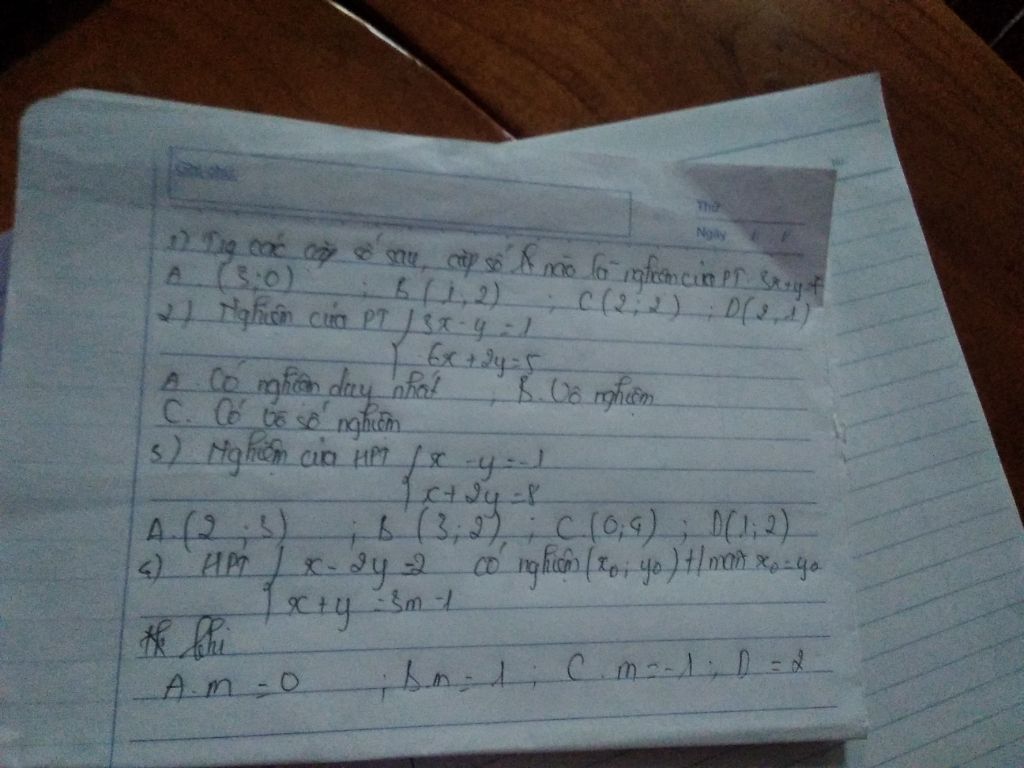 Ghi chú:
Thứ
Ngày
1) Trg các cặp số sau, cặp số nào là nghiệm của PT. 3x+y=
A. (3;0) ; B (1,2) ; C (2;2) ; D(2,1)
2) Nghiệm của PT { 3x-y=1
6x+2y=5
A. Có nghiệm duy nhất ; B. Vô nghiệm
C. Có vô số nghiệm
3) Nghiệm của HPT { x-y=-1
x+2y=8
A.(2;3) ; B (3;2) ; C.(0;4) ; D(1;2)
4) HPT { x-2y=2 có nghiệm (x₀; y₀) t/mãn x₀=y₀
x+y=3m-1
khi
A. m=0 ; B. m=1 ; C. m=-1 ; D =2